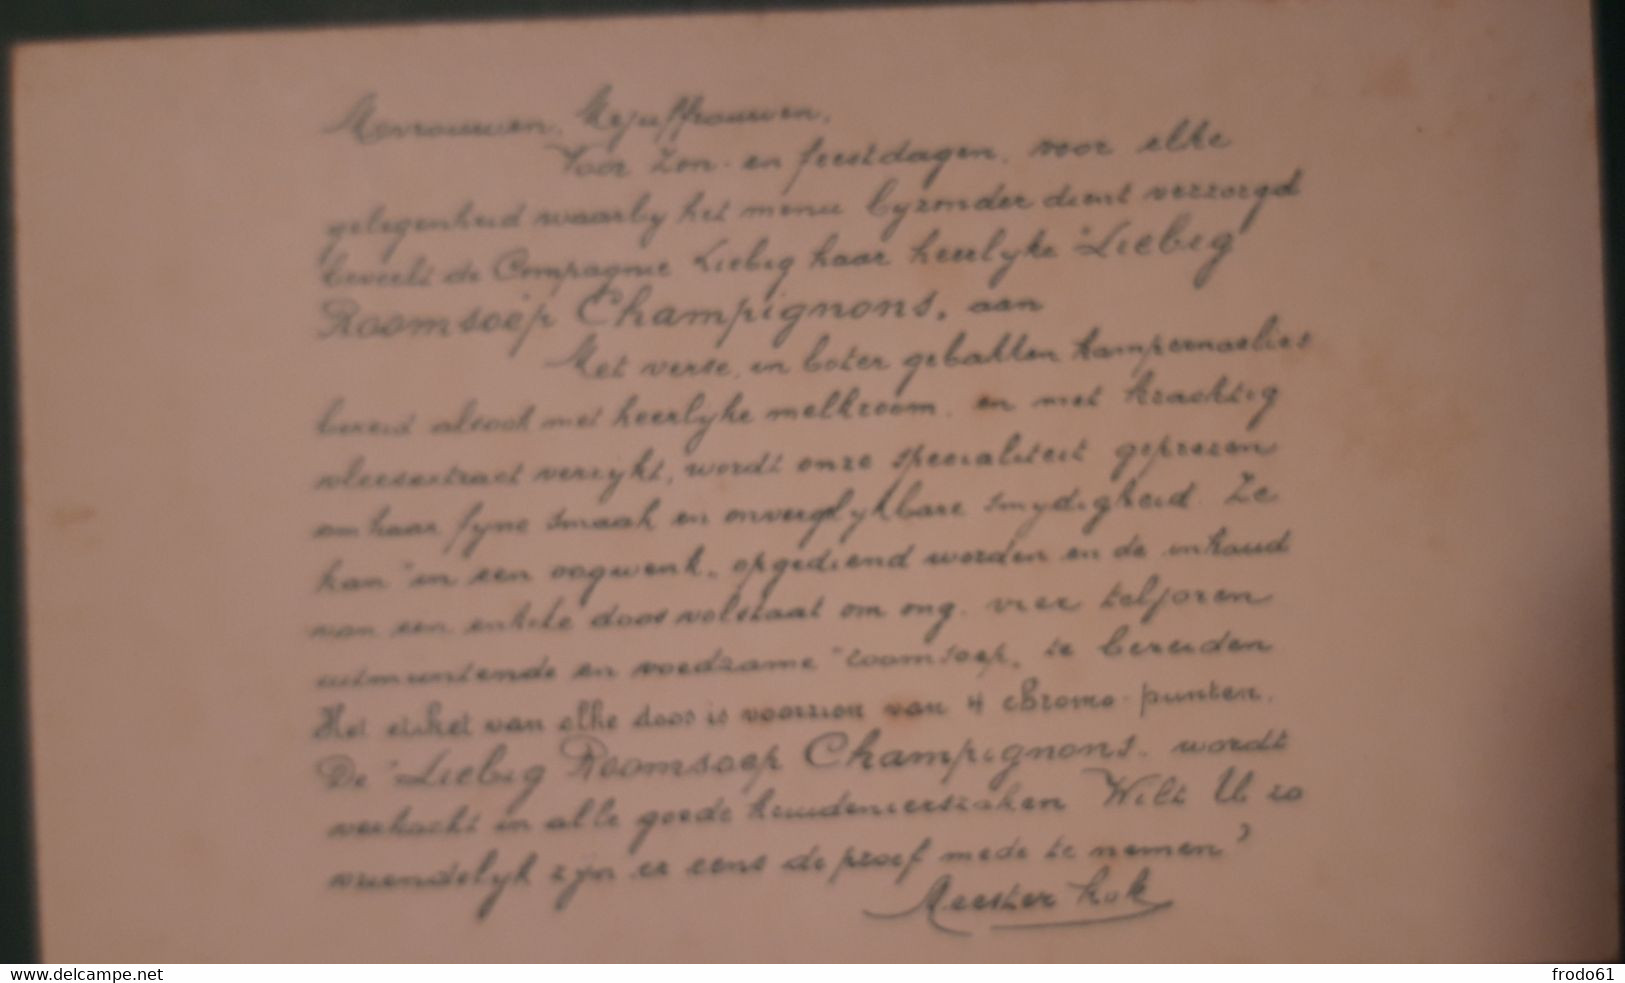 Mevrouwen, Mejuffrouwen,
Voor Zon- en feestdagen, voor elke
gelegenheid waarby het menu byzonder dient verzorgd
beveelt de Compagnie Liebig haar heerlyke "Liebig
Roomsoep Champignons" aan
Met verse, in boter gebakken kampernoelies
bereid alsook met heerlyke melkroom, en met krachtig
vleesextract verrykt, wordt onze specialiteit geprezen
om haar fyne smaak en onverglykbare smydigheid. Ze
kan "in een oogwenk" opgediend worden en de inhoud
van een enkele doos volstaat om ong. vier teljoren
uitmuntende en voedzame "roomsoep" te bereiden
Het etiket van elke doos is voorzien van 4 chromo-punten.
De "Liebig Roomsoep Champignons" wordt
verkocht in alle goede kruidenierszaken Wilt U zo
vriendelyk zijn er eens de proef mede te nemen?
Meester Kok
www.delcampe.net
frodo61